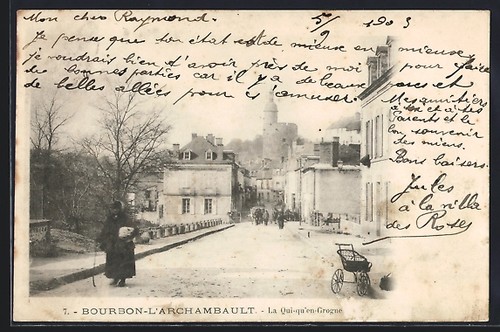 Mon cher Raymond. 5/9 1903
Je pense que ton état est de mieux en mieux
je voudrais bien t'avoir près de moi pour faire
de bonnes parties car il y a de beaux parcs et
de belles allées pour s'amuser.
Mes amitiés
à toi et à tes
parents et le
bon souvenir
des miens.
Bons baisers.
Jules
à la villa
des Roses
7. - BOURBON-L'ARCHAMBAULT. - La Qui-qu'en-Grogne